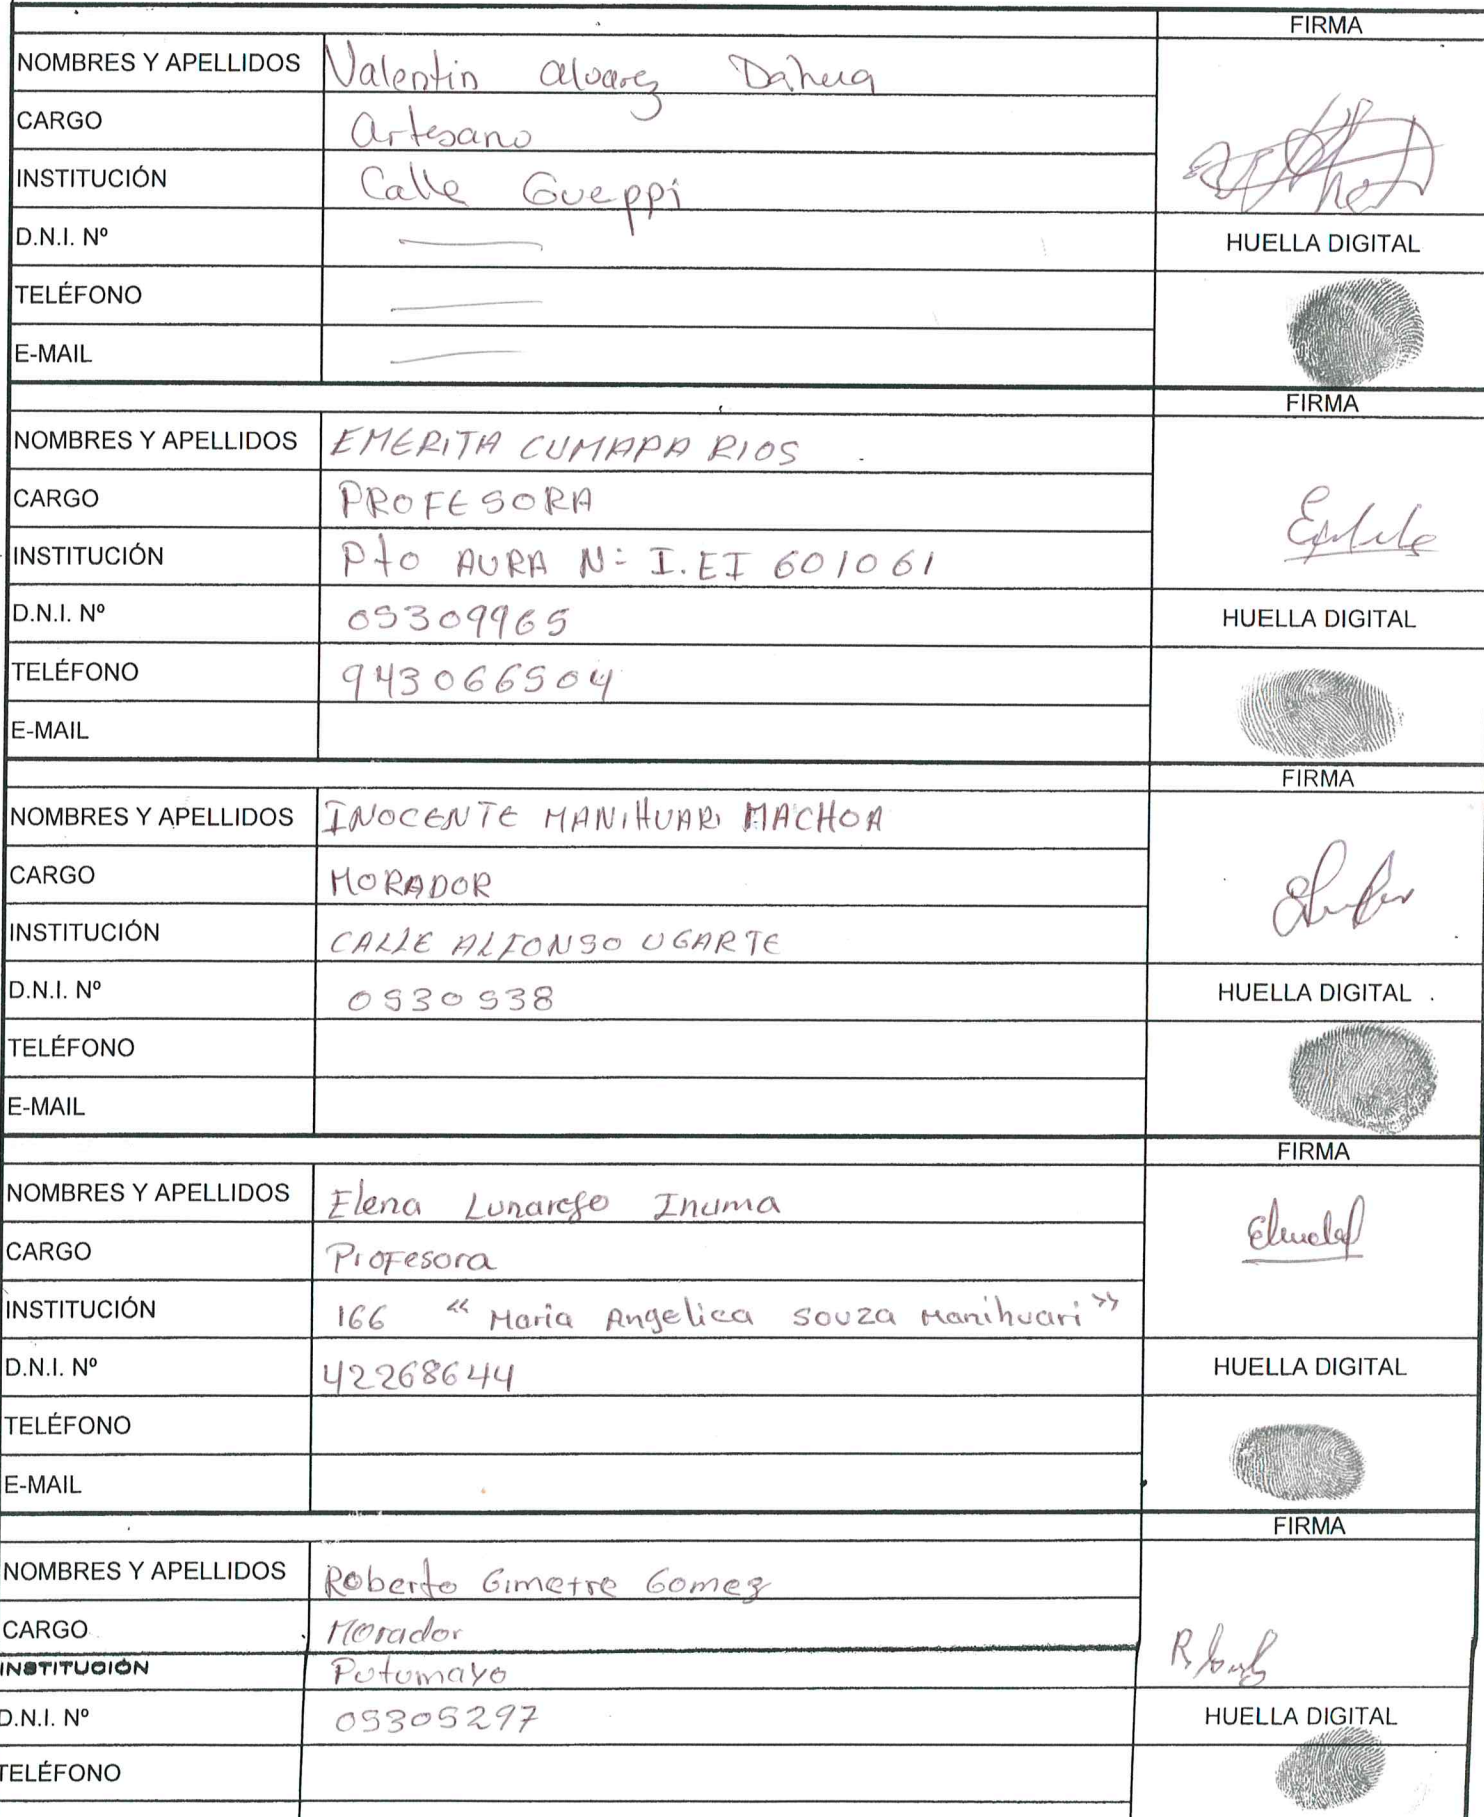 FIRMA
NOMBRES Y APELLIDOS Valentin alvarez Dahua
CARGO artesano
INSTITUCIÓN Calle Gueppi
D.N.I. Nº
HUELLA DIGITAL
TELÉFONO
E-MAIL
FIRMA
NOMBRES Y APELLIDOS EMERITA CUMAPA RIOS
CARGO PROFESORA
INSTITUCIÓN Pto AURA N= I.EI 601061
D.N.I. Nº 05309965
HUELLA DIGITAL
TELÉFONO 943066504
E-MAIL
FIRMA
NOMBRES Y APELLIDOS INOCENTE MANIHUARI MACHOA
CARGO MORADOR
INSTITUCIÓN CALLE ALFONSO UGARTE
D.N.I. Nº 0530538
HUELLA DIGITAL
TELÉFONO
E-MAIL
FIRMA
NOMBRES Y APELLIDOS Elena Lunarejo Inuma
CARGO Profesora
INSTITUCIÓN 166 "Maria Angelica Souza Manihuari"
D.N.I. Nº 42268644
HUELLA DIGITAL
TELÉFONO
E-MAIL
FIRMA
NOMBRES Y APELLIDOS Roberto Gimetre Gomez
CARGO Morador
INSTITUCIÓN Putumayo
D.N.I. Nº 05305297
HUELLA DIGITAL
TELÉFONO